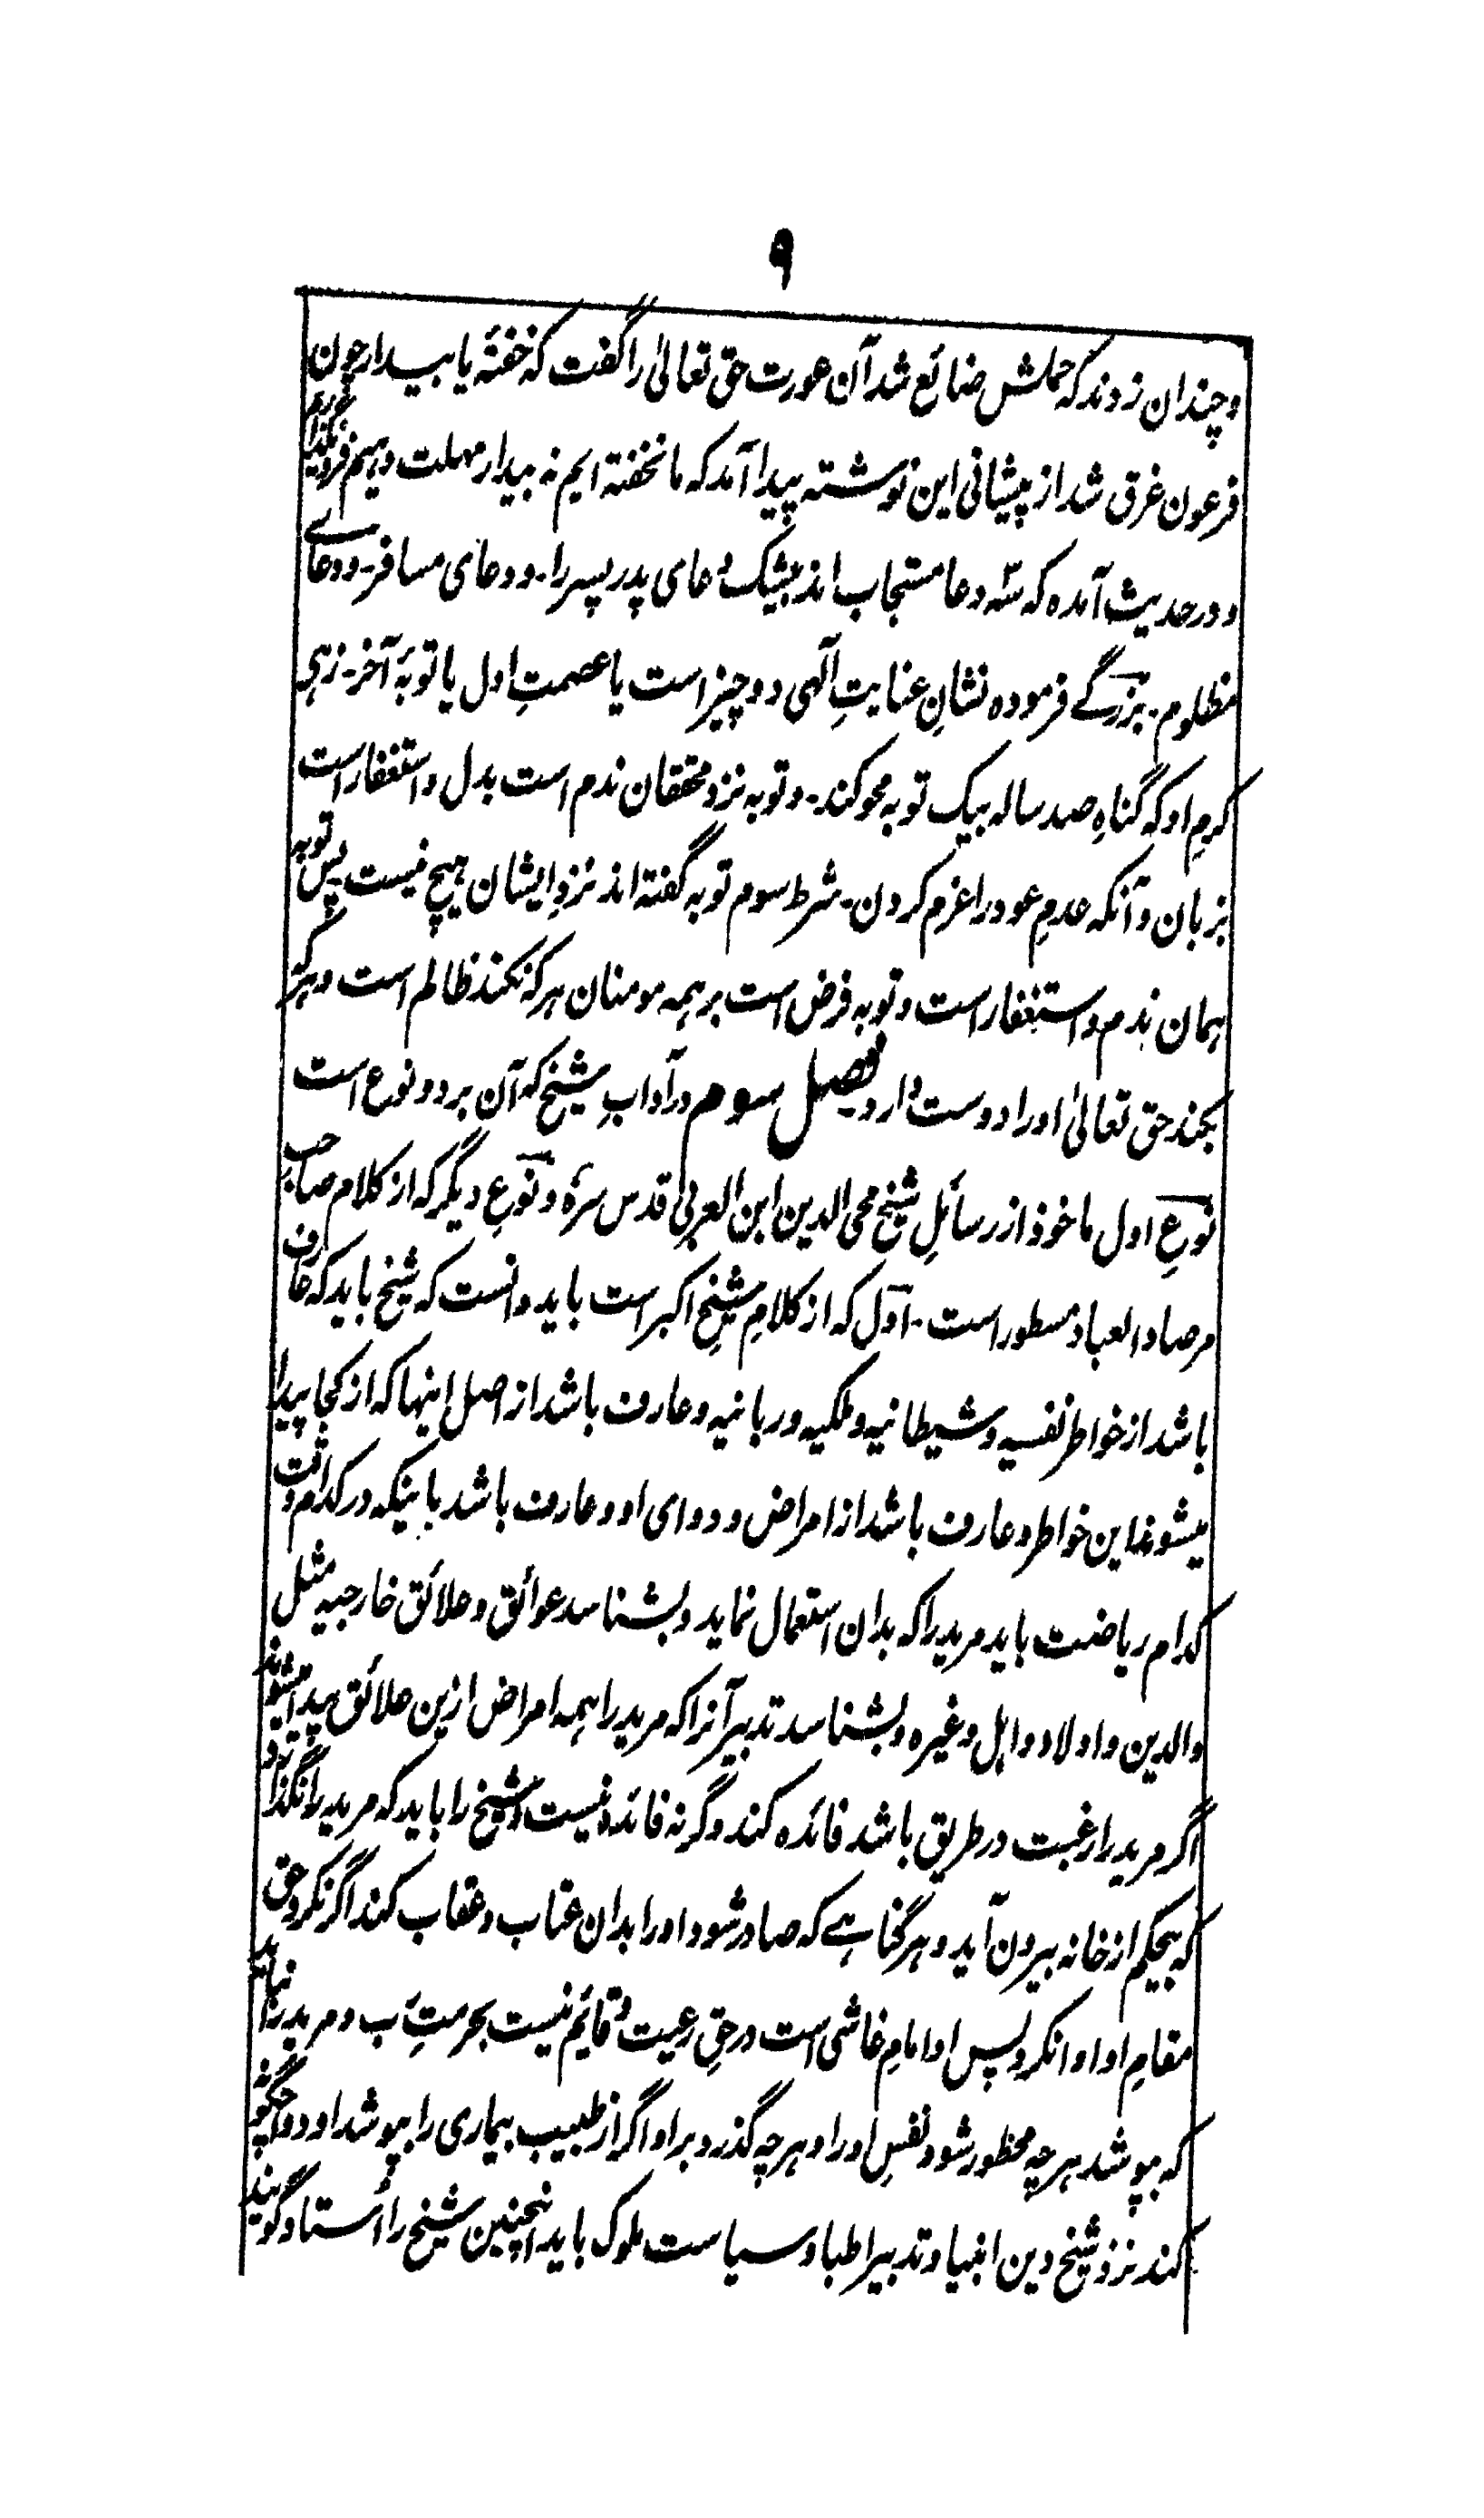 ۹
و چندان زدند که حملش ضائع شد آن عورت حق تعالیٰ را گفت که خفتۀ یا بیدار چون
فرعون غرق شد از پیشانی این نوشته پیدا آمد که ما نخفتہ ایم نہ بیدار مهلت دہیم فرو نگذاریم
و در حدیث آمده که سہ دعا مستجاب اند بیشک دعای پدر پسر را۔ و دعای مسافر۔ و دعاے
مظلوم۔ بزرگے فرموده نشانِ عنایتِ آلٰهی دو چیز است یا عصمتِ اول یا توبۂ آخر۔ زہی
کرمِ او که گناهِ صد ساله بیک توبه محو کند۔ و توبه نزد محققان ندم است بدل و استغفار است
بزبان و آنکه عدمِ عود را عزم کردن۔ شرط سوم توبه گفته اند نزدِ ایشان ہیچ نیست پس توبه
ہمان ندم و استغفار است و توبه فرض است بر ہمه مومنان ہر که نکند ظالم است و ہر که
بکند حق تعالیٰ او را دوست دارد فصل سوم در آدابِ شیخ که آن بر دو نوع است
نوعِ اول ماخوذ از رسائلِ شیخ محی الدین ابن العربی قدس سرهٗ و نوعِ دیگر که از کلام صاحب
مرصاد العباد مسطور است۔ اول که از کلامِ شیخِ اکبر است باید دانست که شیخ باید که عارف
باشد از خواطر نفسیه و شیطانیه و ملکیه و ربانیه و عارف باشد از اصل اینها که از کجا پیدا
میشوند این خواطر و عارف باشد از امراض و دوای او و عارف باشد باینکه در کدام وقت
کدام ریاضت باید مرید را که بدان استعمال نماید و بشناسد عوائق و علائق خارجیه مثل
والدین و اولاد و اہل و غیره و بشناسد تدبیر آنرا که مرید را ہمه امراض ازین علائق پیدا میشوند
اگر مرید را رغبت در طریق باشد فائده کند و گرنه فائده نیست و شیخ را باید که مرید را نگذارد
که بیحکم از خانه بیرون آید و ہر گناہے که صادر شود او را بدان عتاب و عقاب کند اگر نکرد حق
مقامِ او ادا نکرد پس او امامِ غاشی است در حقِ رعیت و قایم نیست بحرمتِ رب و مرید را نباید
که بپوشد ہر چه محظور شود نفسِ او را و ہر چه گذرد بر او اگر از طبیب بیماری را بپوشد او دوا چگونه
کند نزد شیخ دین انبیا و تدبیر اطبا و سیاست ملوک باید اینچنین شیخ را اُستاد گویند